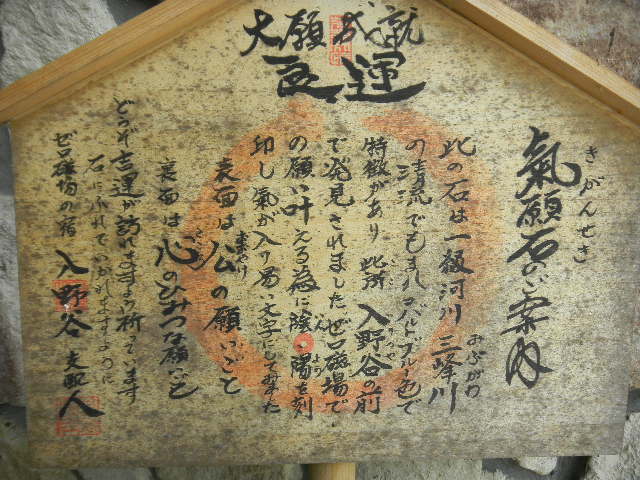 大願成就
良運
氣願石のご案内
きがんせき
此の石は一級河川 三峰川
みぶがわ
の清流でもまれコバルトブルー色で
特徴があり 此所 入野谷の前
で発見されました。ゼロ磁場で
の願い叶える為に陰・陽を刻
いん よう
印し氣が入り易い文字にしてみました
表面は公の願いごと
おおやけ
裏面は心のひみつな願いごと
どうぞ吉運が訪れますよう祈っています
石にふれていかれますように
ゼロ磁場の宿 入野谷 支配人